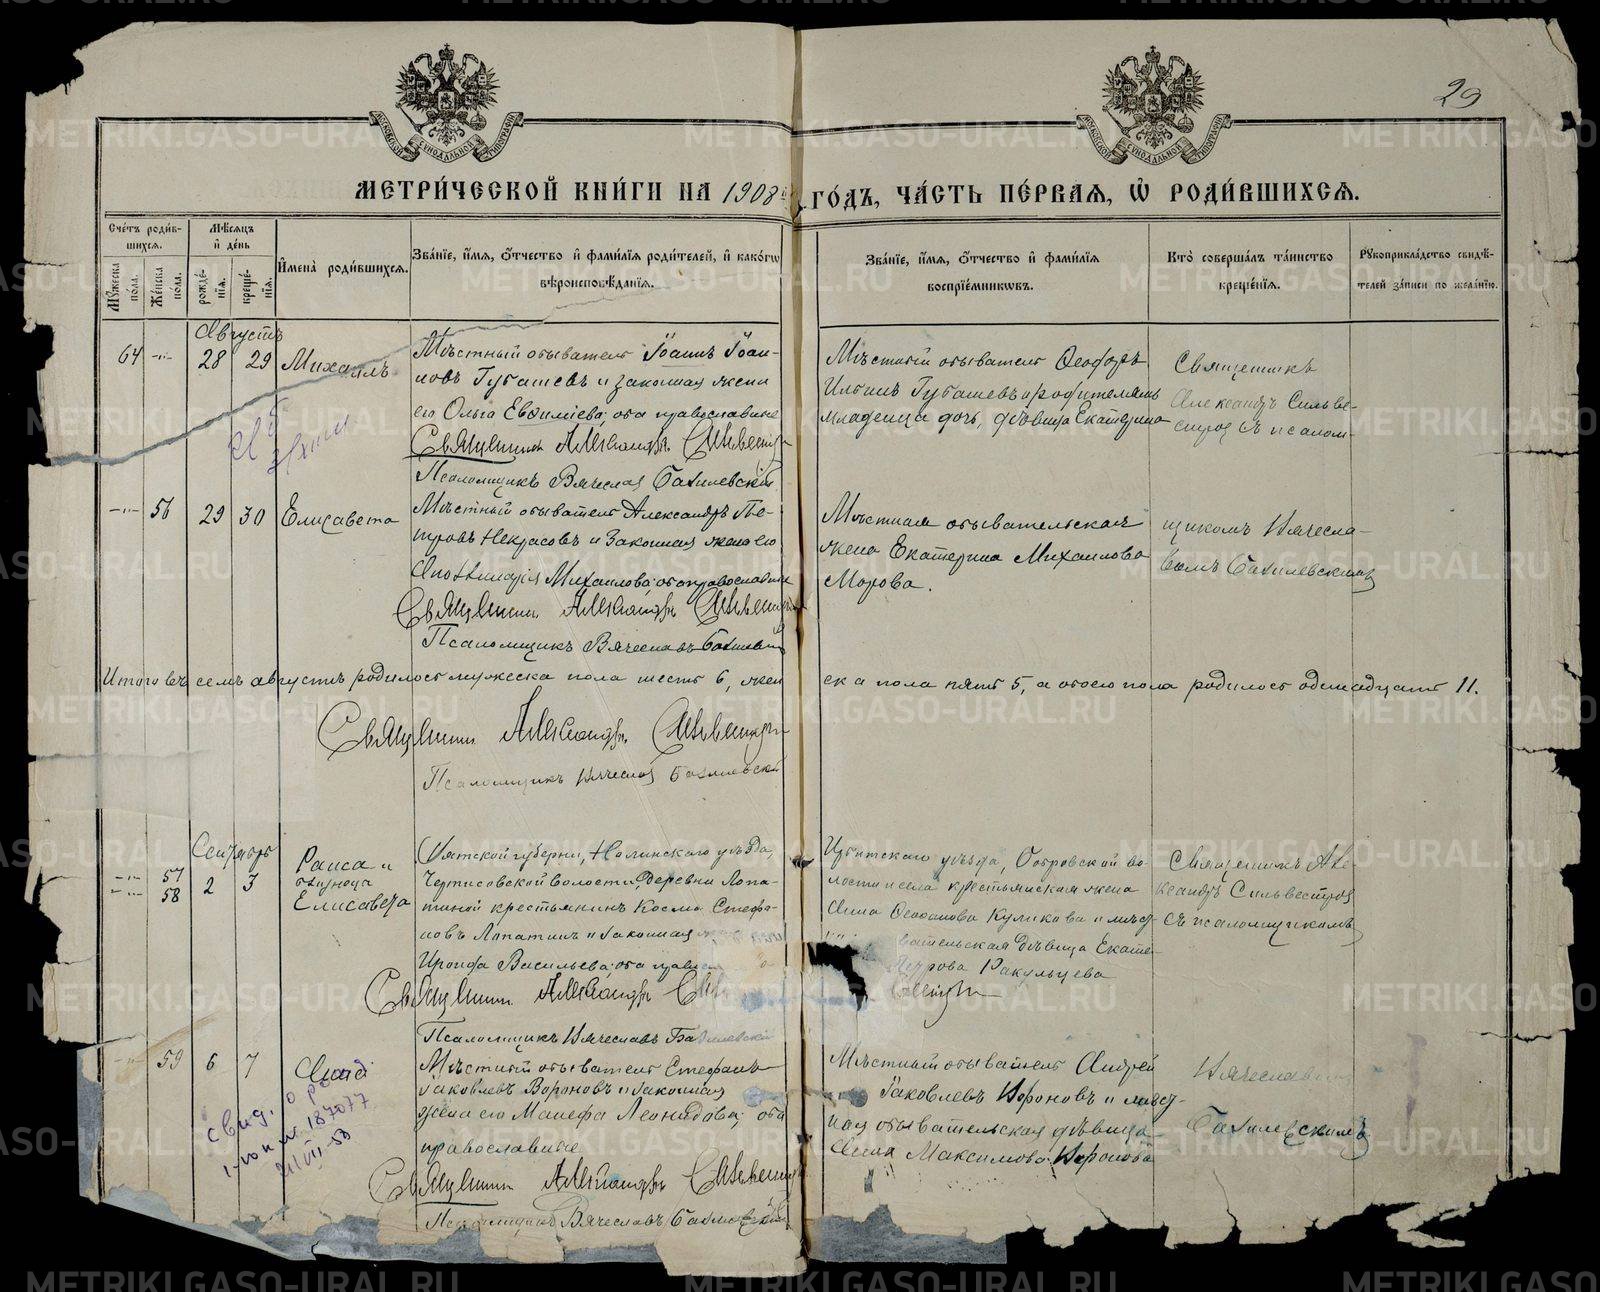 29
МЕТРИ́ЧЕСКОЙ КНИ́ГИ НА 1908й ГО́ДЪ, ЧА́СТЬ ПЕ́РВАЯ, Ѡ РОДИ́ВШИХСЯ.
Сче́тъ роди́вшихся.
Мꙋ́жеска по́ла.
Же́нска по́ла.
Мѣ́сяцъ и҆ де́нь
рожде́нїя.
креще́нїя.
И҆мена̀ роди́вшихся.
Зва́нїе, и҆́мя, ѻ҆́тчество и҆ фами́лїя роди́телей, и҆ како́гѡ
вѣроисповѣ́данїя.
Зва́нїе, и҆́мя, ѻ҆́тчество и҆ фами́лїя
воспрїе́мникѡвъ.
Кто̀ соверша́лъ та́инство
креще́нїя.
Рꙋкоприкла́дство свидѣ́-
телей за́писи по жела́нїю.
Августъ
64 -"- 28 29 Михаилъ
Мѣстный обыватель Іоаннъ Іоан-
новъ Губашевъ и законная жена
его Ольга Евфиміева; оба православные
Священникъ Александръ Сильвестровъ
Псаломщикъ Вячеславъ
Мѣстный обыватель Ѳеодоръ
Губашевъ и родителямъ
младенца дочь, дѣвица Екатерина
Священникъ
Александръ Сильве-
стровъ съ псалом-
-"- 56 29 30 Елисавета
Мѣстный обыватель Александръ Пе-
тровъ Некрасовъ и Законная жена его
Михаилова; оба православные
Священникъ Александръ Сильвестровъ
Псаломщикъ Вячеславъ
Мѣстная обывательская
жена Екатерина Михаилова
Морова.
щикомъ Вячесла-
вомъ
Итого въ семъ августѣ родилось мужеска пола шесть 6, жен
ска пола пять 5, а обоего пола родилось одинадцать 11.
Священникъ Александръ Сильвестровъ
Псаломщикъ Вячеславъ
Сентябрь
-"- 57
-"- 58 2 3
Раиса и
близнеца
Елисавета
Вятской губерніи, Нолинскаго уѣзда,
волости, деревни Лопа-
тиной крестьянинъ Косма Стефа-
новъ Лопатинъ и законная
Васильева; оба
Священникъ Александръ
Псаломщикъ Вячеславъ
Ирбитскаго уѣзда, во-
лости и села крестьянская жена
Анна Куликова и мѣст-
вательская дѣвица Екате-
Петрова Ракульцева
Священникъ Але-
ксандръ Сильвестровъ
съ псаломщикомъ
-"- 59 6 7
Мѣстный обыватель Стефанъ
Іаковлевъ Вороновъ и законная
жена его Манефа Леонидова; оба
православные
Священникъ Александръ Сильвестровъ
Псаломщикъ Вячеславъ
Мѣстный обыватель Андрей
Іаковлевъ Вороновъ и мѣст-
ная обывательская дѣвица
Максимова Воронова
Вячеславомъ
свид. о р
187077
METRIKI.GASO-URAL.RU